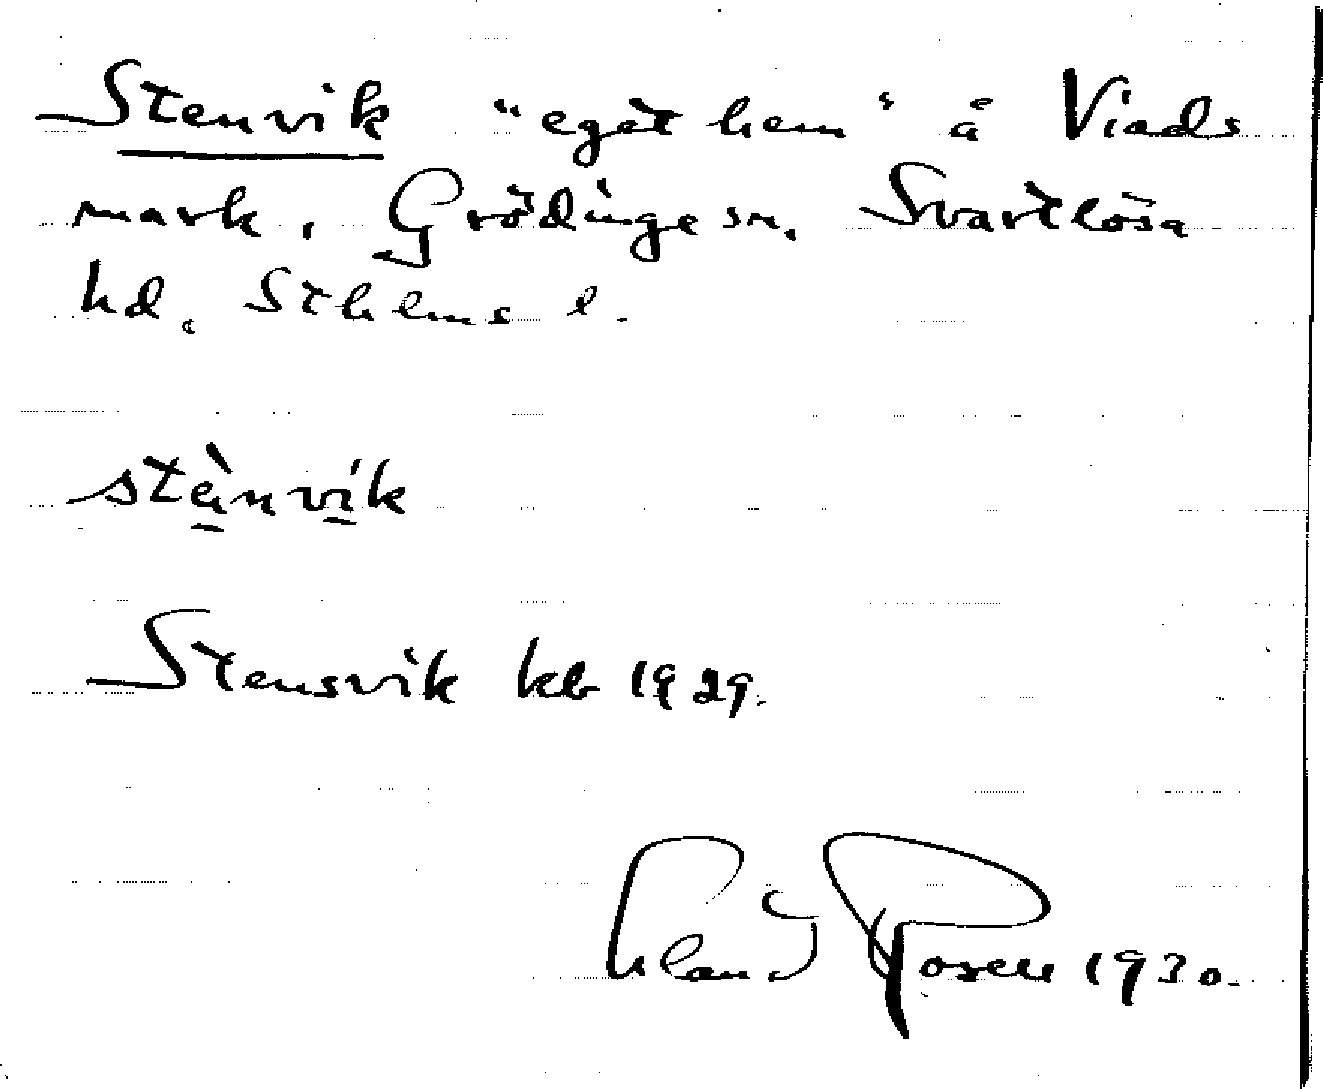 Stenvik "eget hem" å Viads
mark, Grödinge sn, Svartlösa
hd, Sthlms l.
stènvík
Stensvik kb 1929.
Rosen 1930.